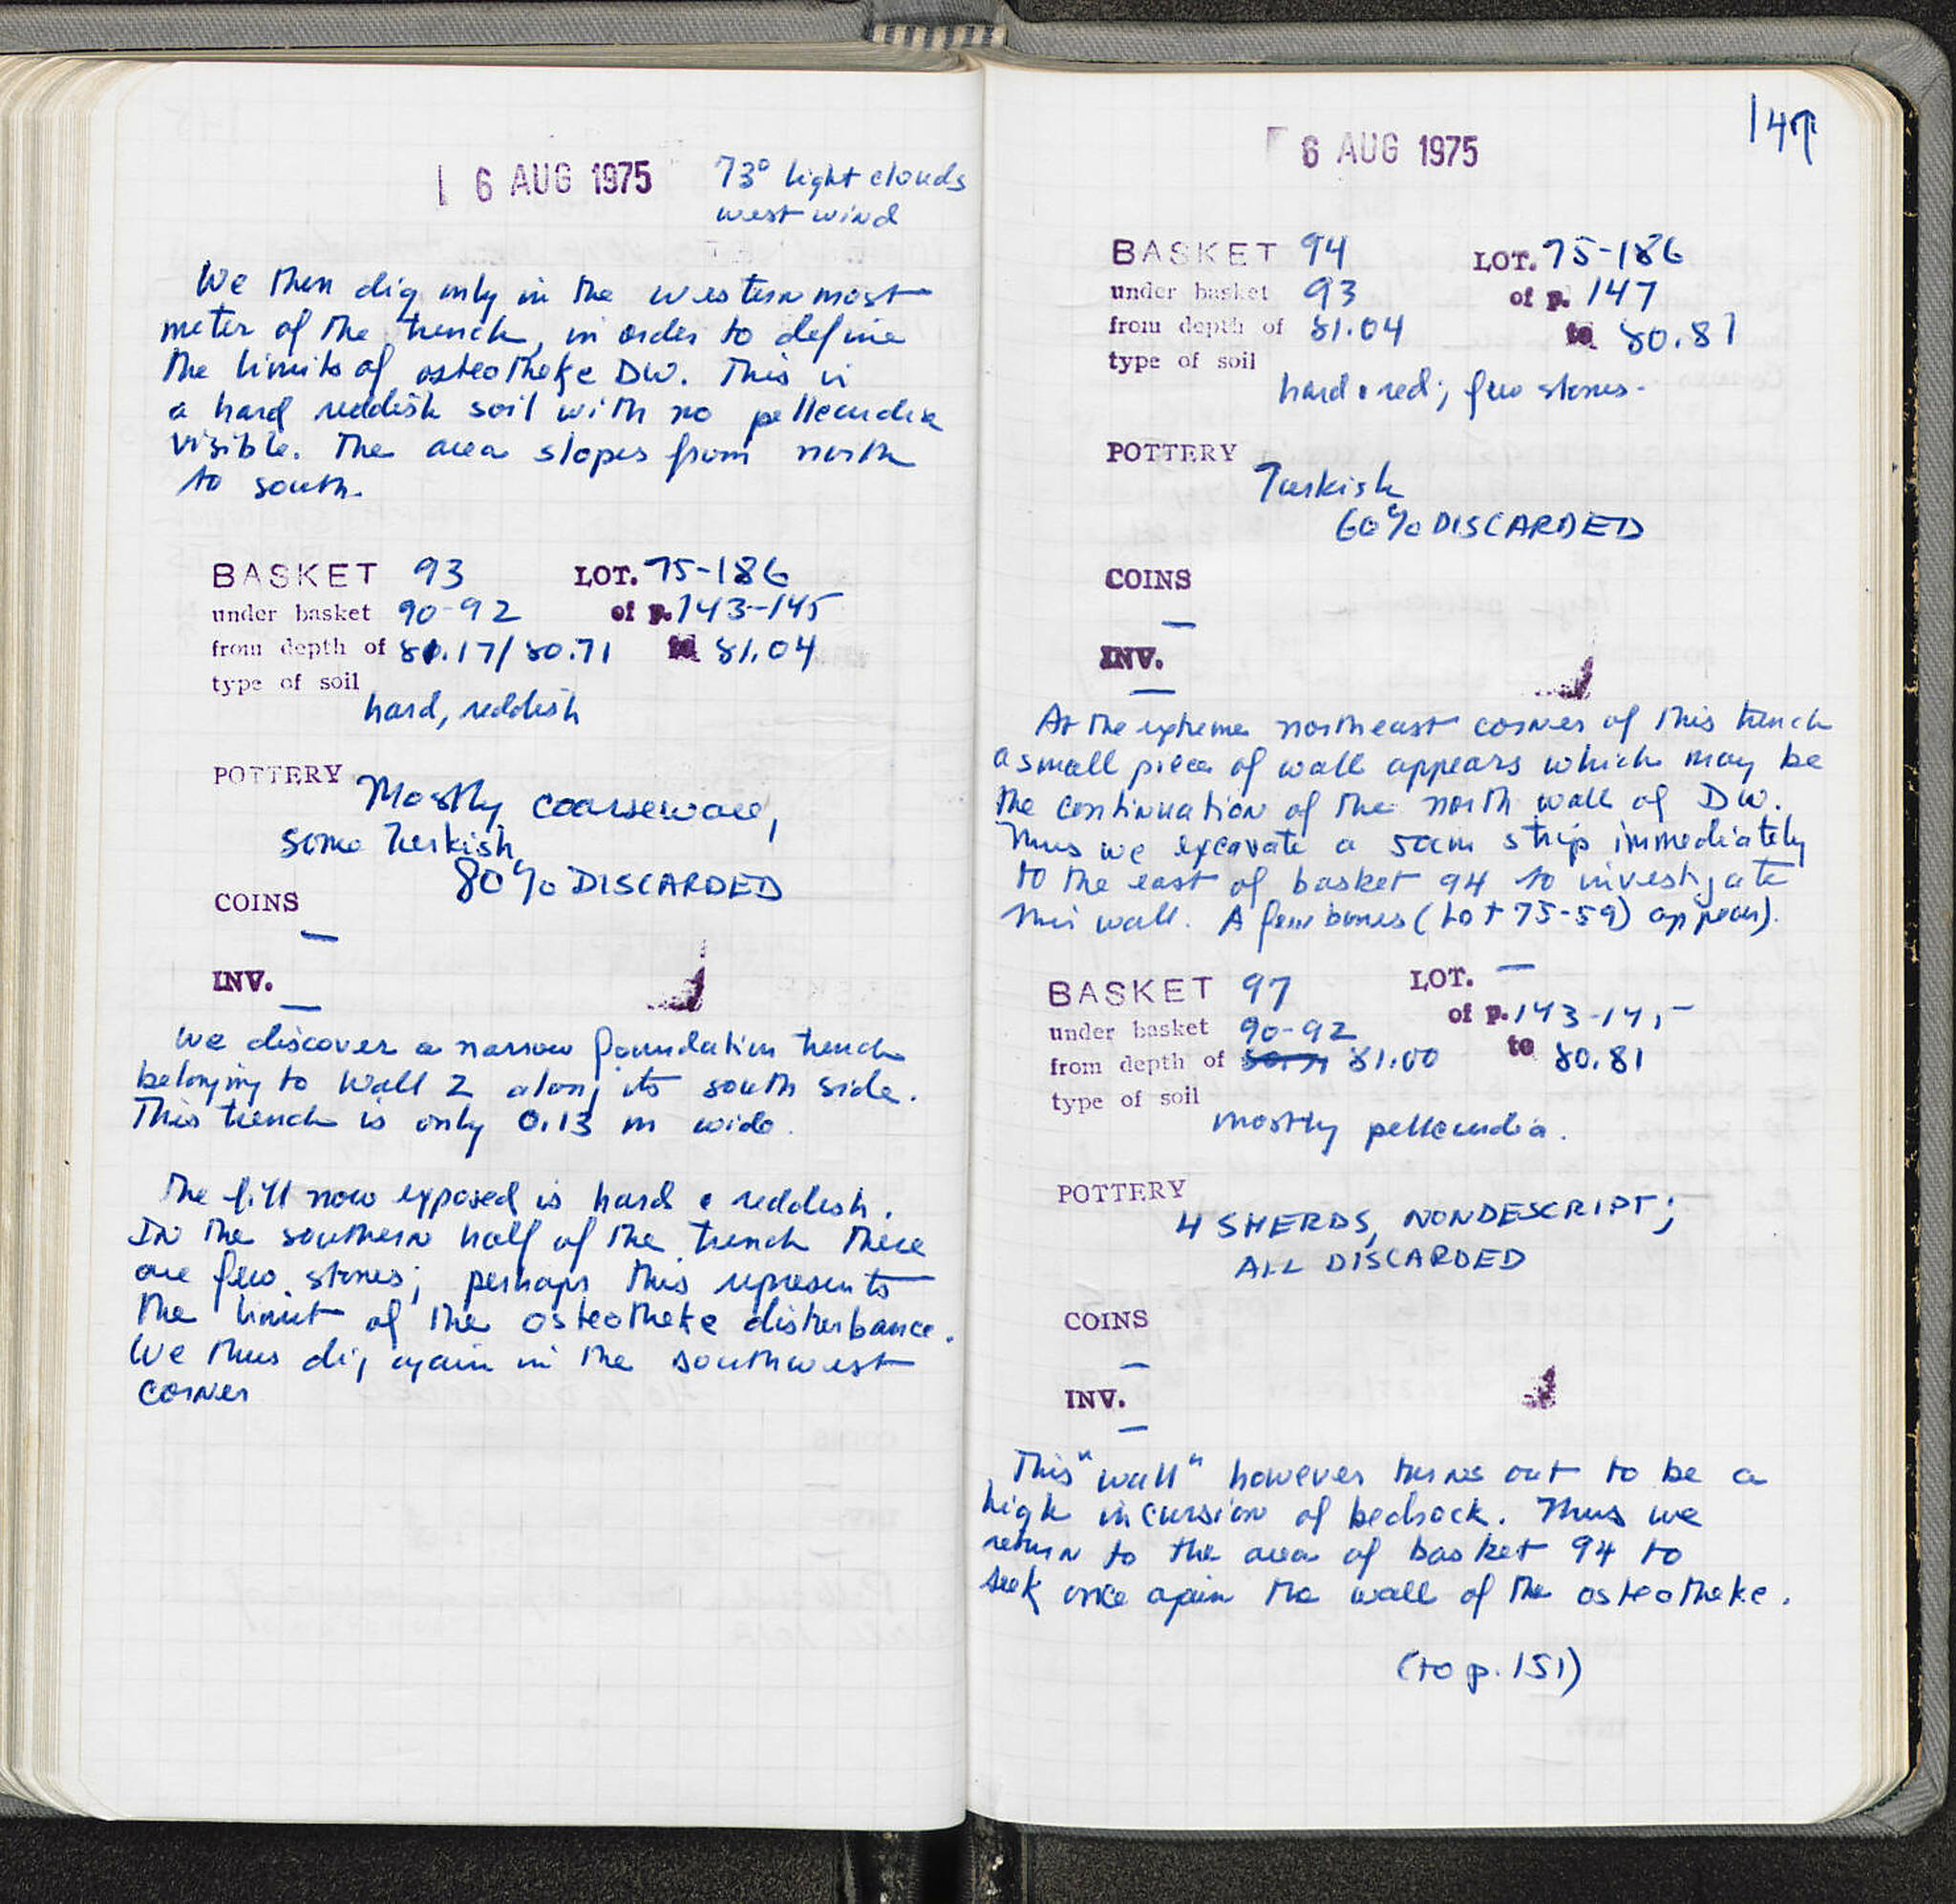 6 AUG 1975 73° light clouds
west wind
We then dig only in the westernmost
meter of the trench, in order to define
the limits of osteotheke DW. This is
a hard reddish soil with no pelleundia
visible. The area slopes from north
to south.
BASKET 93 LOT. 75-186
under basket 90-92 of p. 143-145
from depth of 81.17/80.71 to 81.04
type of soil
hard, reddish
POTTERY Mostly coarseware,
some Turkish
80% DISCARDED
COINS
—
INV.
—
We discover a narrow foundation trench
belonging to Wall 2 along its south side.
This trench is only 0.13 m wide.
The fill now exposed is hard & reddish.
In the southern half of the trench there
are few stones; perhaps this represents
the limit of the osteotheke disturbance.
We thus dig again in the southwest
corner
6 AUG 1975
BASKET 94 LOT. 75-186
under basket 93 of p. 147
from depth of 81.04 to 80.81
type of soil
hard & red; few stones.
POTTERY
Turkish
60% DISCARDED
COINS
—
INV.
—
At the extreme northeast corner of this trench
a small piece of wall appears which may be
the continuation of the north wall of DW.
Thus we excavate a 50cm strip immediately
to the east of basket 94 to investigate
this wall. A few bones (Lot 75-59) appear).
BASKET 97 LOT. —
under basket 90-92 of p. 143-145
from depth of 81.00 to 80.81
type of soil
mostly pelleundia.
POTTERY
4 SHERDS, NONDESCRIPT;
ALL DISCARDED
COINS
—
INV.
—
This "wall" however turns out to be a
high incursion of bedrock. Thus we
return to the area of basket 94 to
seek once again the wall of the osteotheke.
(to p. 151)